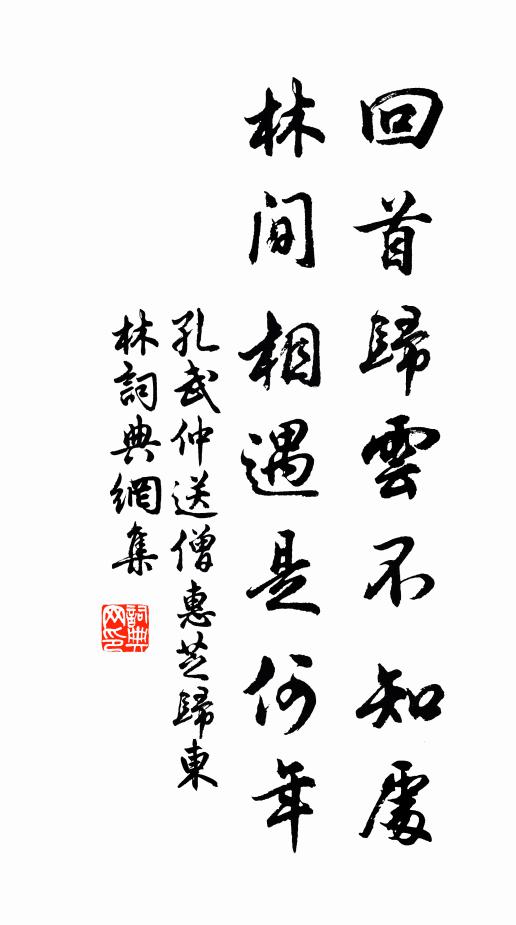 回首歸雲不知處
林間相遇是何年
孔武仲送僧惠芝歸東
林詞典網集
詞典網印